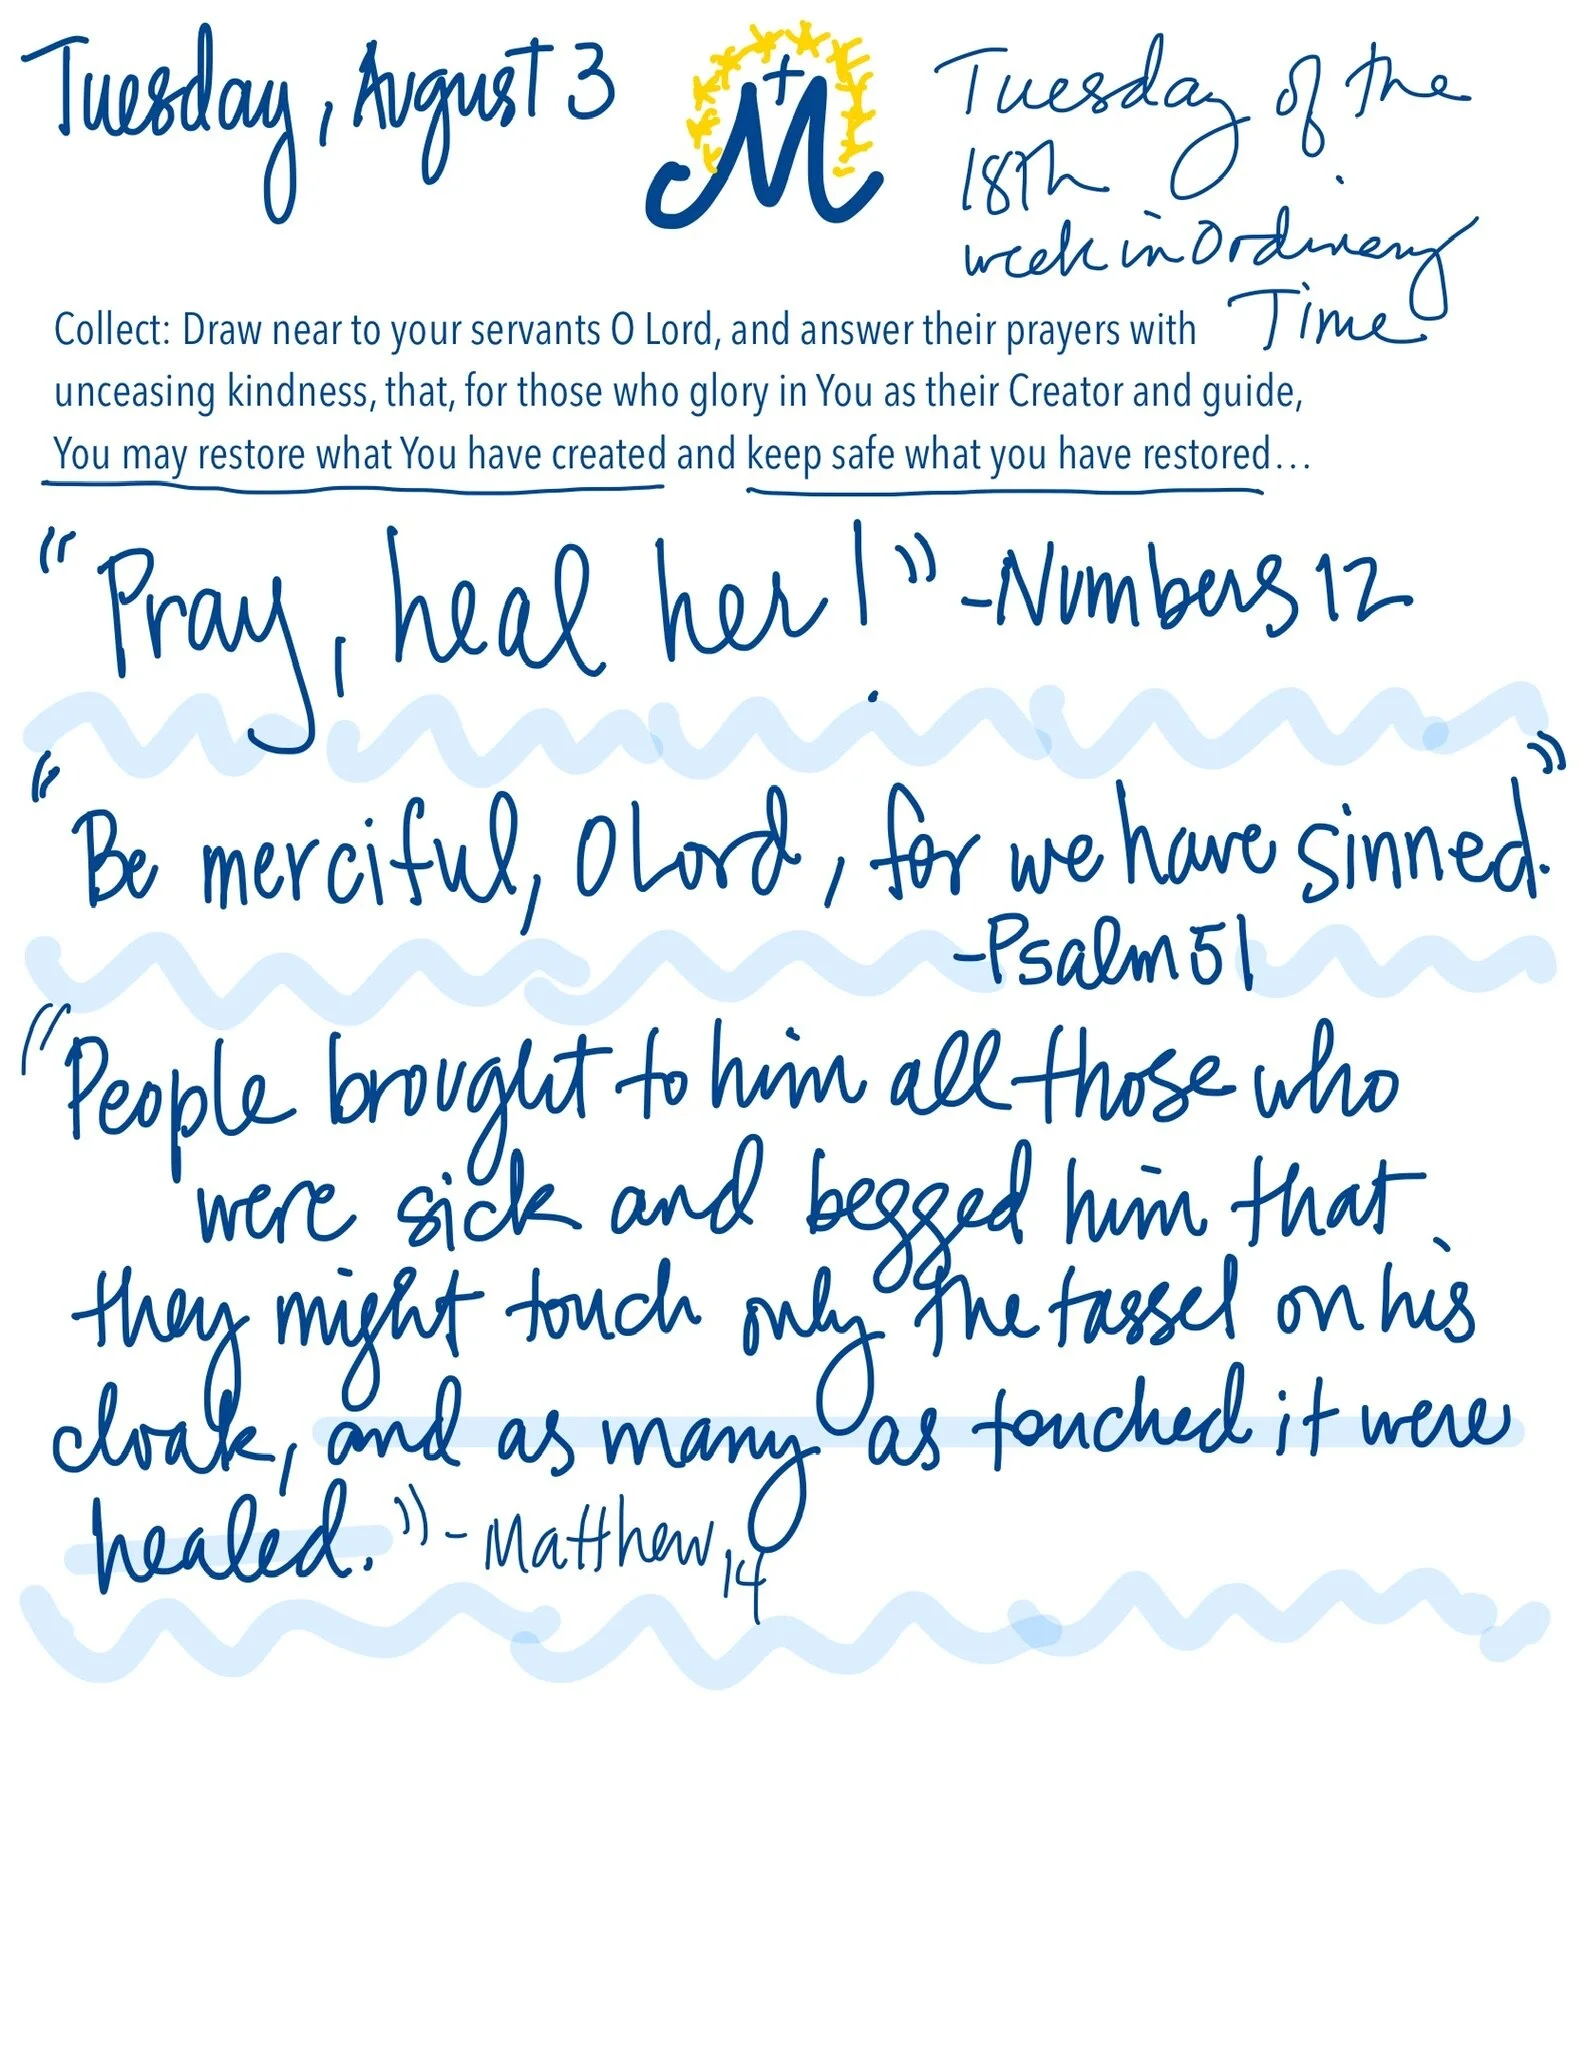 Tuesday, August 3
M
Tuesday of the
18th
week in Ordinary
Time
Collect: Draw near to your servants O Lord, and answer their prayers with
unceasing kindness, that, for those who glory in You as their Creator and guide,
You may restore what You have created and keep safe what you have restored...
"Pray, heal her!" -Numbers 12
"Be merciful, O Lord, for we have sinned."
-Psalm 51
"People brought to him all those who
were sick and begged him that
they might touch only the tassel on his
cloak, and as many as touched it were
healed." - Matthew 14